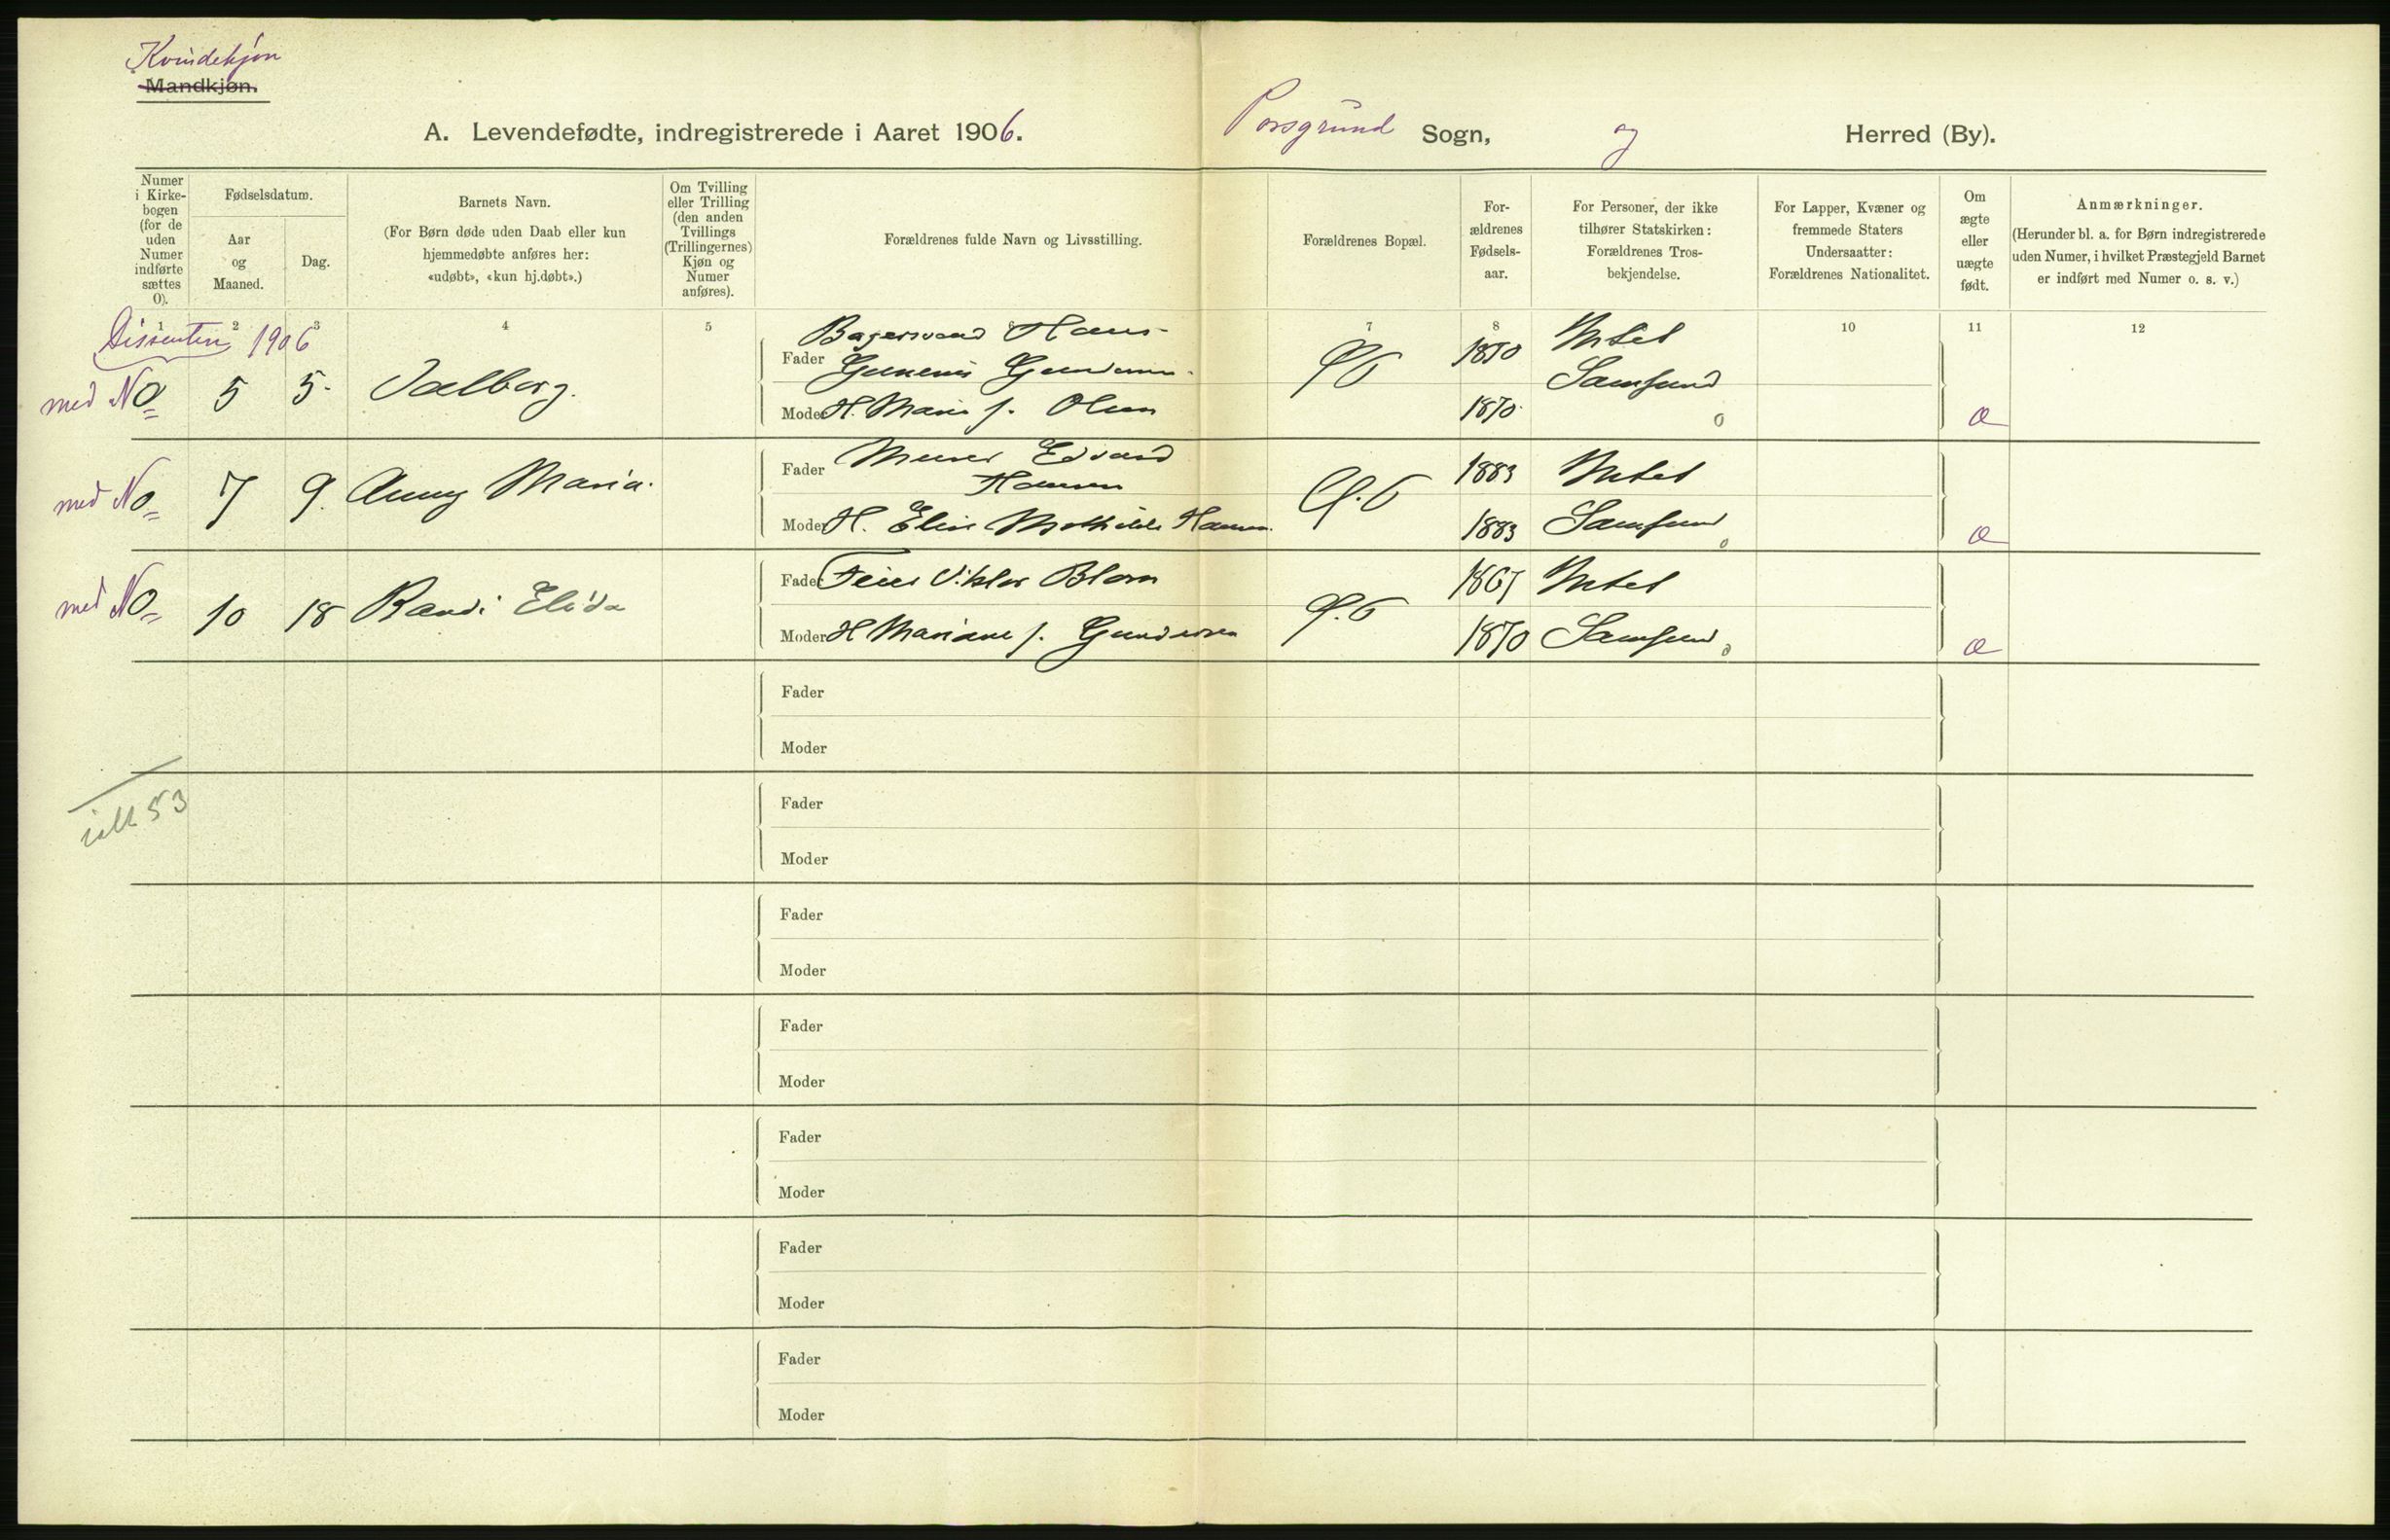 Kvindekjøn
Mandkjøn.
A. Levendefødte, indregistrerede i Aaret 1906.
Porsgrund Sogn, og Herred (By).
Numer i Kirkebogen (for de uden Numer indførte sættes 0).
Fødselsdatum.
Aar og Maaned.
Dag.
Barnets Navn.
(For Børn døde uden Daab eller kun
hjemmedøbte anføres her:
«udøbt», «kun hj.døbt».)
Om Tvilling
eller Trilling
(den anden
Tvillings
(Trillingernes)
Kjøn og
Numer
anføres).
Forældrenes fulde Navn og Livsstilling.
Forældrenes Bopæl.
For-
ældrenes
Fødsels-
aar.
For Personer, der ikke
tilhører Statskirken:
Forældrenes Tros-
bekjendelse.
For Lapper, Kvæner og
fremmede Staters
Undersaatter:
Forældrenes Nationalitet.
Om
ægte
eller
uægte
født.
Anmærkninger.
(Herunder bl. a. for Børn indregistrerede
uden Numer, i hvilket Præstegjeld Barnet
er indført med Numer o. s. v.)
1 2 3 4 5 6 7 8 10 11 12
Dissenter 1906
med No 5 5. Valborg.
Fader Hans
Gundersen
Moder H. Marie f. Olsen
1850
1870
Intet
Samfund
æ
med No 7 9. Anny Maria.
Fader Murer Edvard
Hansen
Moder H. Elise Mathilde Hansen.
1883
1883
Intet
Samfund
æ
med No 10 18 Randi Elida
Fader Feier Viktor Blom
Moder H Mariane f. Gundersen
1867
1870
Intet
Samfund
æ
Fader
Moder
ialt 53
Fader
Moder
Fader
Moder
Fader
Moder
Fader
Moder
Fader
Moder
Fader
Moder